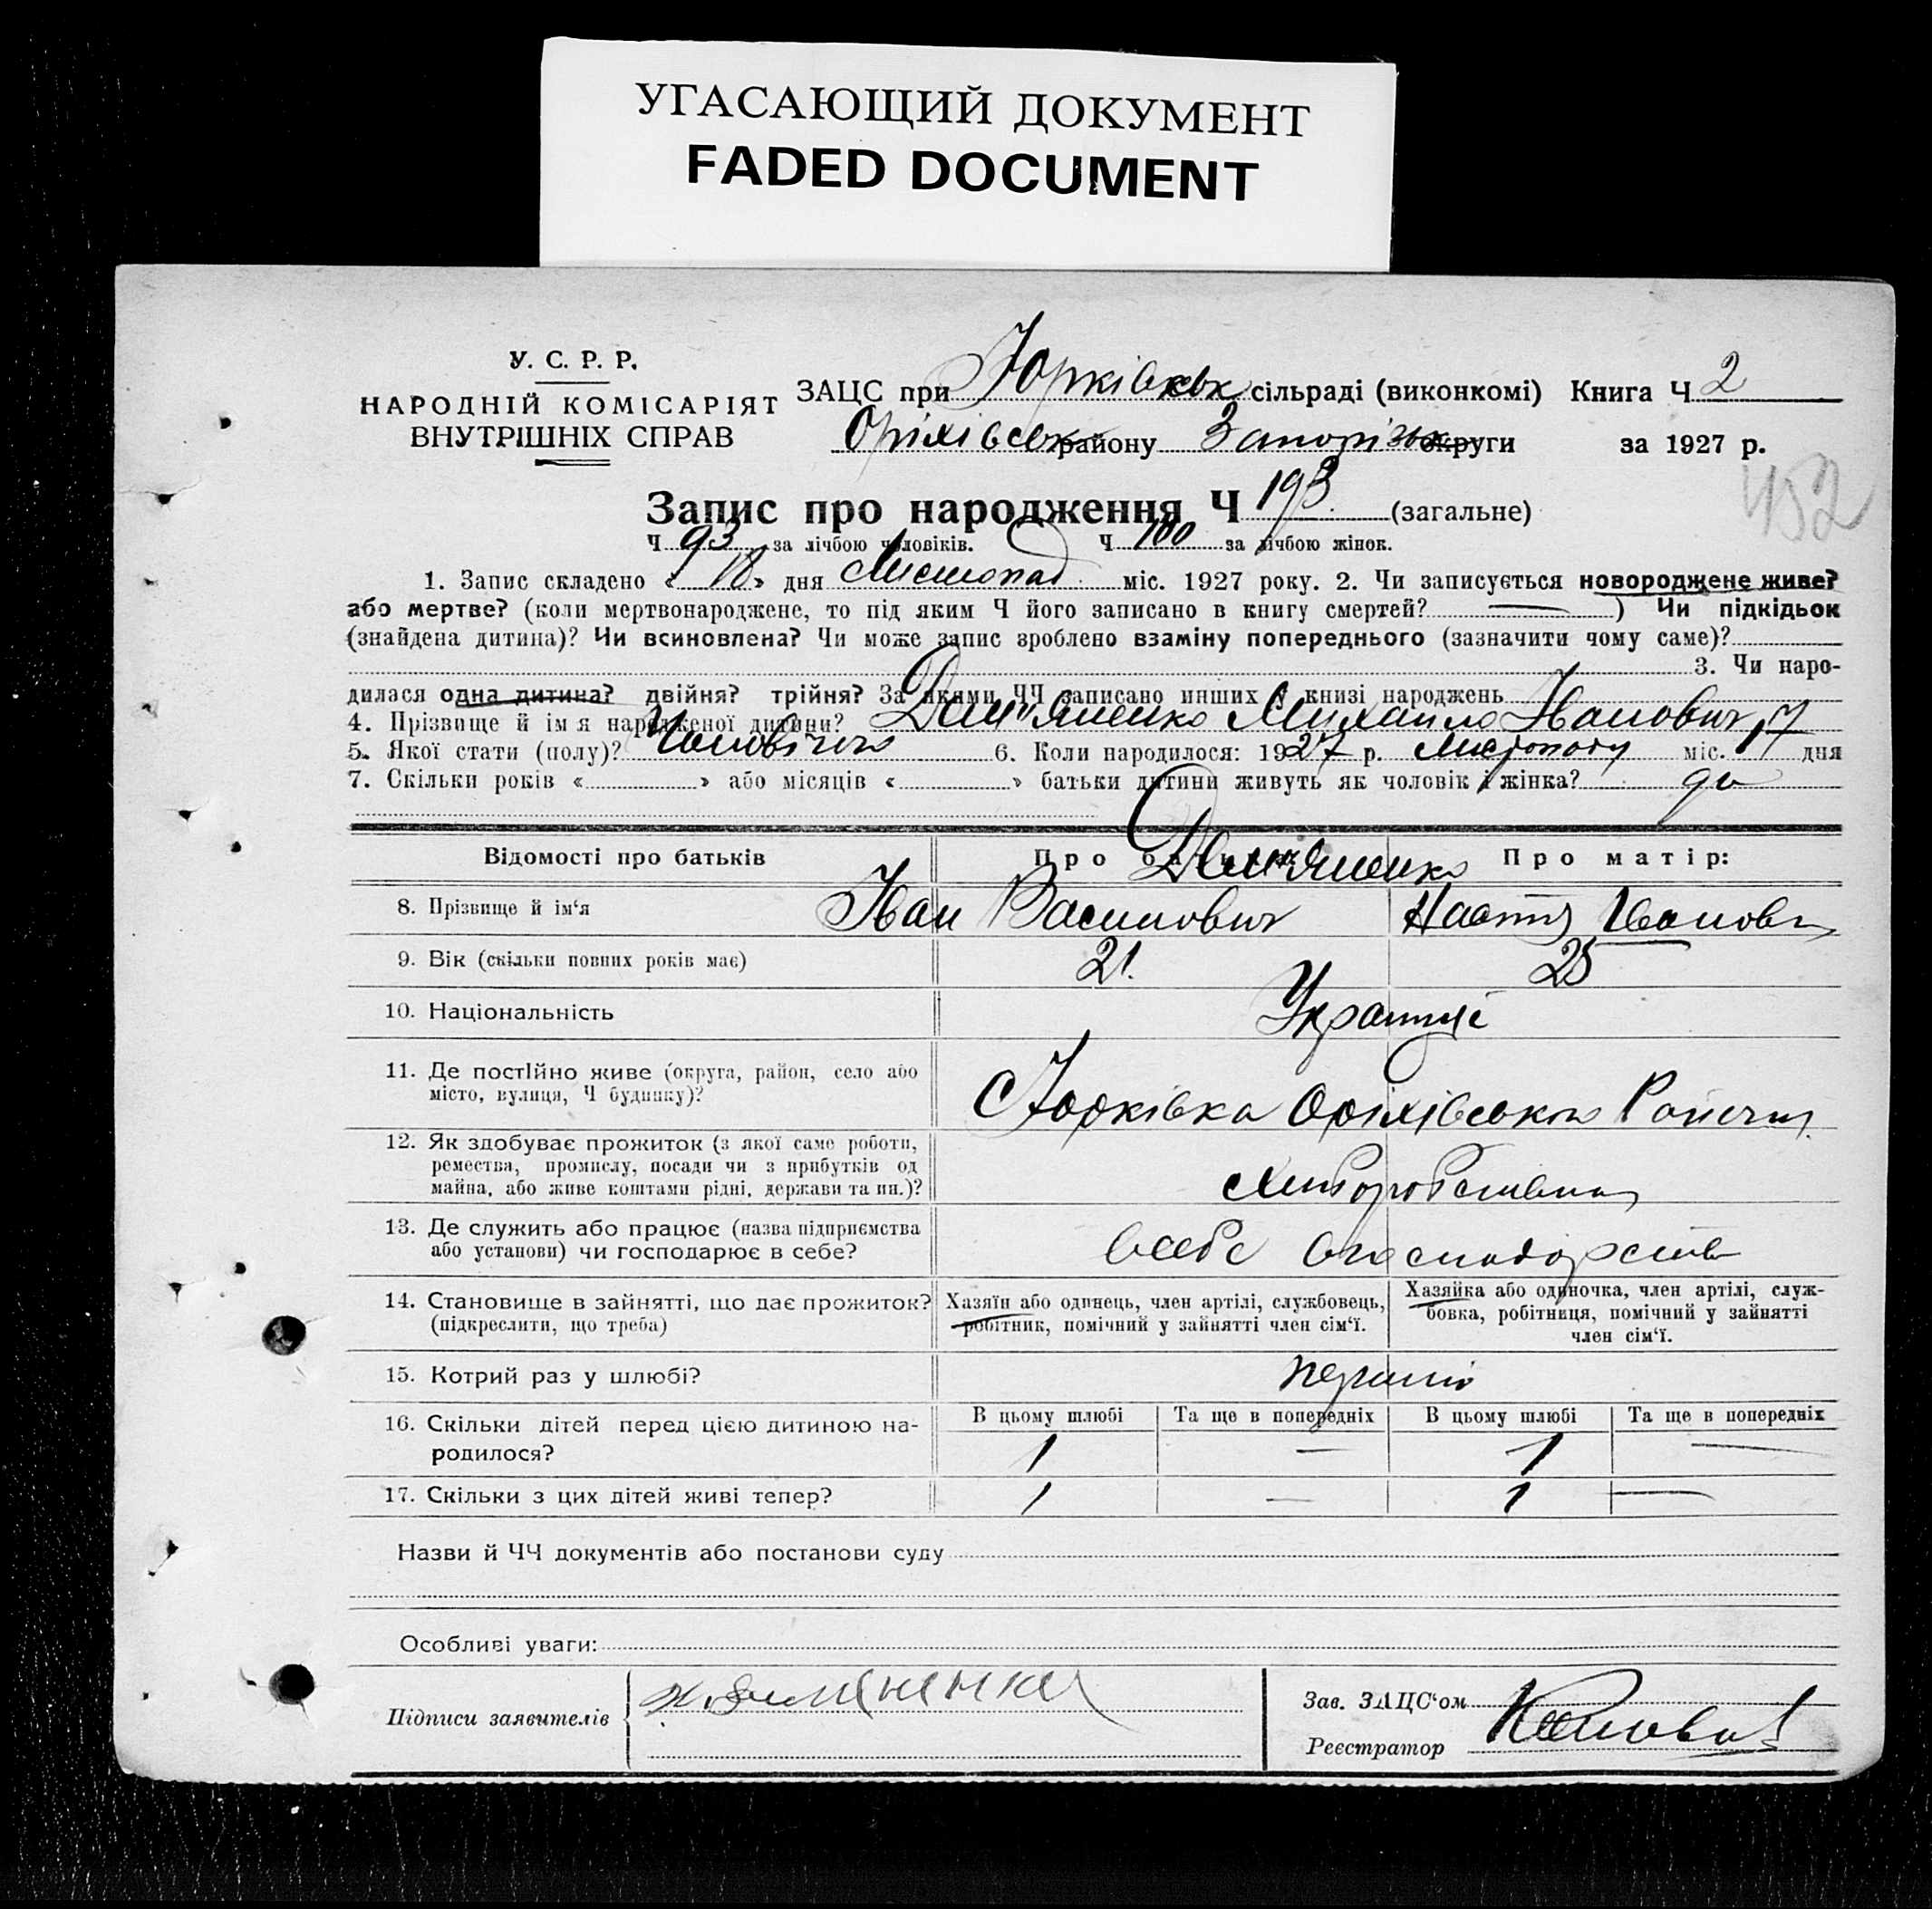 УГАСАЮЩИЙ ДОКУМЕНТ
FADED DOCUMENT
У. С. Р. Р.
НАРОДНІЙ КОМІСАРІЯТ
ВНУТРІШНІХ СПРАВ
ЗАЦС при Юрківськ сільраді (виконкомі) Книга Ч 2
Оріхівськ району Запорізьк округи за 1927 р.
452
Запис про народження Ч 193 (загальне)
Ч 93 за лічбою чоловіків. Ч 100 за лічбою жінок.
1. Запис складено « 18 » дня Листопад міс. 1927 року. 2. Чи записується новороджене живе?
або мертве? (коли мертвонароджене, то під яким Ч його записано в книгу смертей? — ) Чи підкідьок
(знайдена дитина)? Чи всиновлена? Чи може запис зроблено взаміну попереднього (зазначити чому саме)?
3. Чи наро-
дилася одна дитина? двійня? трійня? За якими ЧЧ записано инших у книзі народжень
4. Прізвище й ім я народженої дитини? Дем"яненко Михайло Іванович
5. Якої стати (полу)? Чоловічого 6. Коли народилося: 1927 р. Листопаду міс. 17 дня
7. Скільки років « » або місяців « » батьки дитини живуть як чоловік і жінка?
Відомості про батьків
Про батька: Про матір:
Дем"яненко
8. Прізвище й ім‘я Іван Василович Настя Іванов
9. Вік (скільки повних років має) 21. 25
10. Національність Українці
11. Де постійно живе (округа, район, село або
місто, вулиця, Ч будинку)?
С Юрківка Оріхівського
12. Як здобуває прожиток (з якої саме роботи,
ремества, промислу, посади чи з прибутків од
майна, або живе коштами рідні, держави та ин.)?
13. Де служить або працює (назва підприємства
або установи) чи господарює в себе?
всебе
14. Становище в зайнятті, що дає прожиток?
(підкреслити, що треба)
Хазяїн або одинець, член артілі, службовець,
робітник, помічний у зайнятті член сім‘ї.
Хазяйка або одиночка, член артілі, служ-
бовка, робітниця, помічний у зайнятті
член сім‘ї.
15. Котрий раз у шлюбі?
16. Скільки дітей перед цією дитиною на-
родилося?
В цьому шлюбі Та ще в попередніх В цьому шлюбі Та ще в попередніх
1 — 1 —
17. Скільки з цих дітей живі тепер? 1 — 1 —
Назви й ЧЧ документів або постанови суду
Особливі уваги:
Підписи заявителів
Зав. ЗАЦС‘ом
Реєстратор